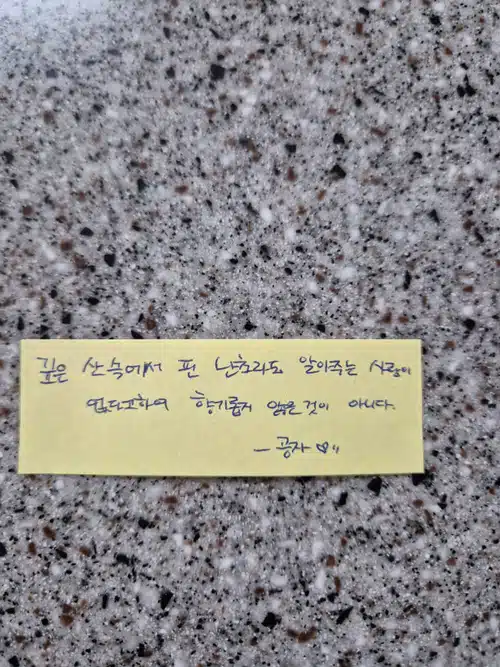 깊은 산속에서 핀 난초라도 알아주는 사람이
없다고하여 향기롭지 않은 것이 아니다.
- 공자 ♡"